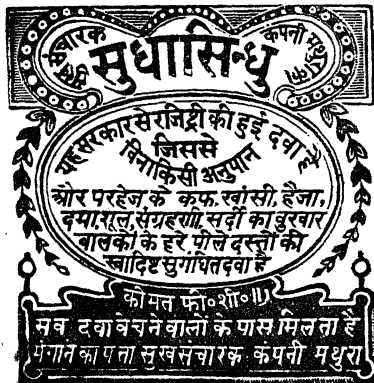 सुख संचारक कंपनी मथुरा का
सुधासिन्धु
यह सरकार से रजिष्ट्री की हुई दवा है
जिससे
विना किसी अनुपान
और परहेज के कफ, खांसी, हैजा,
दमा, शूल, संग्रहणी, सर्दी का बुखार
बालकों के हरे, पीले दस्तों की
स्वादिष्ट सुगंधित दवा है
कीमत फी० शी० ॥)
सब दवा बेचने वालों के पास मिलता है
मंगाने का पता सुख संचारक कंपनी मथुरा